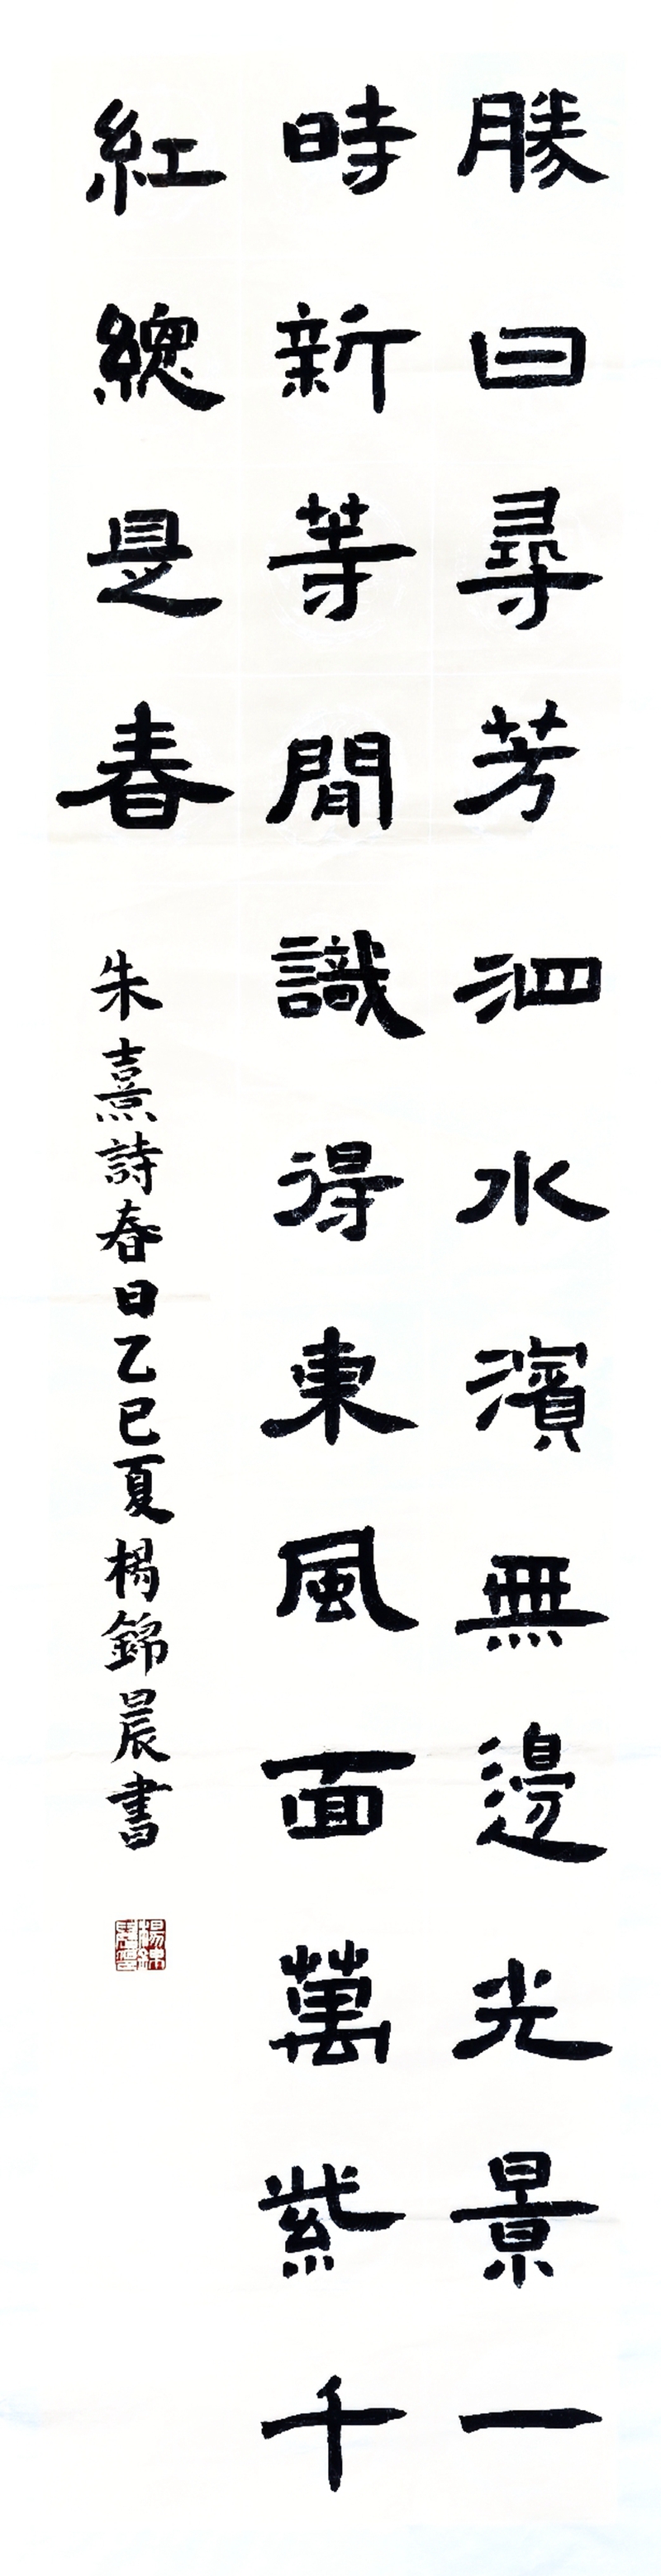 勝日尋芳泗水濱無邊光景一
時新等閒識得東風面萬紫千
紅總是春
朱熹詩春日乙巳夏楊錦晨書